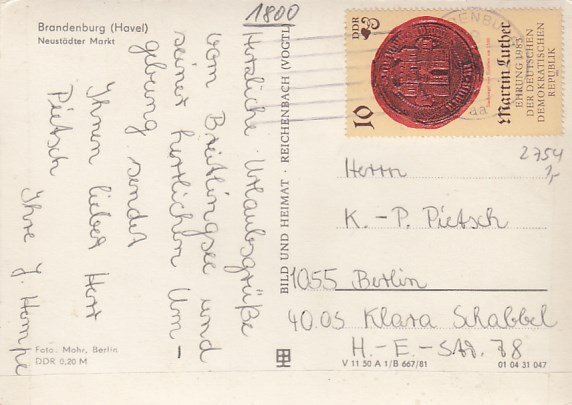 Brandenburg (Havel)
Neustädter Markt
1800
Herzliche Urlaubsgrüße
vom Breitlingsee und
seiner herrlichen Um-
gebung sendet
Ihnen lieber Herr
Pietsch
Ihre J. Hempe
Foto: Mohr, Berlin
DDR 0,20 M
BILD UND HEIMAT · REICHENBACH (VOGTL)
DDR
10
Martin Luther
EHRUNG 1983
DER DEUTSCHEN
DEMOKRATISCHEN
REPUBLIK
2754
Herrn
K.-P. Pietsch
1055 Berlin
40.05 Klara Schabbel
H.-E.-Str. 78
V 11 50 A 1/B 667/81
01 04 31 047